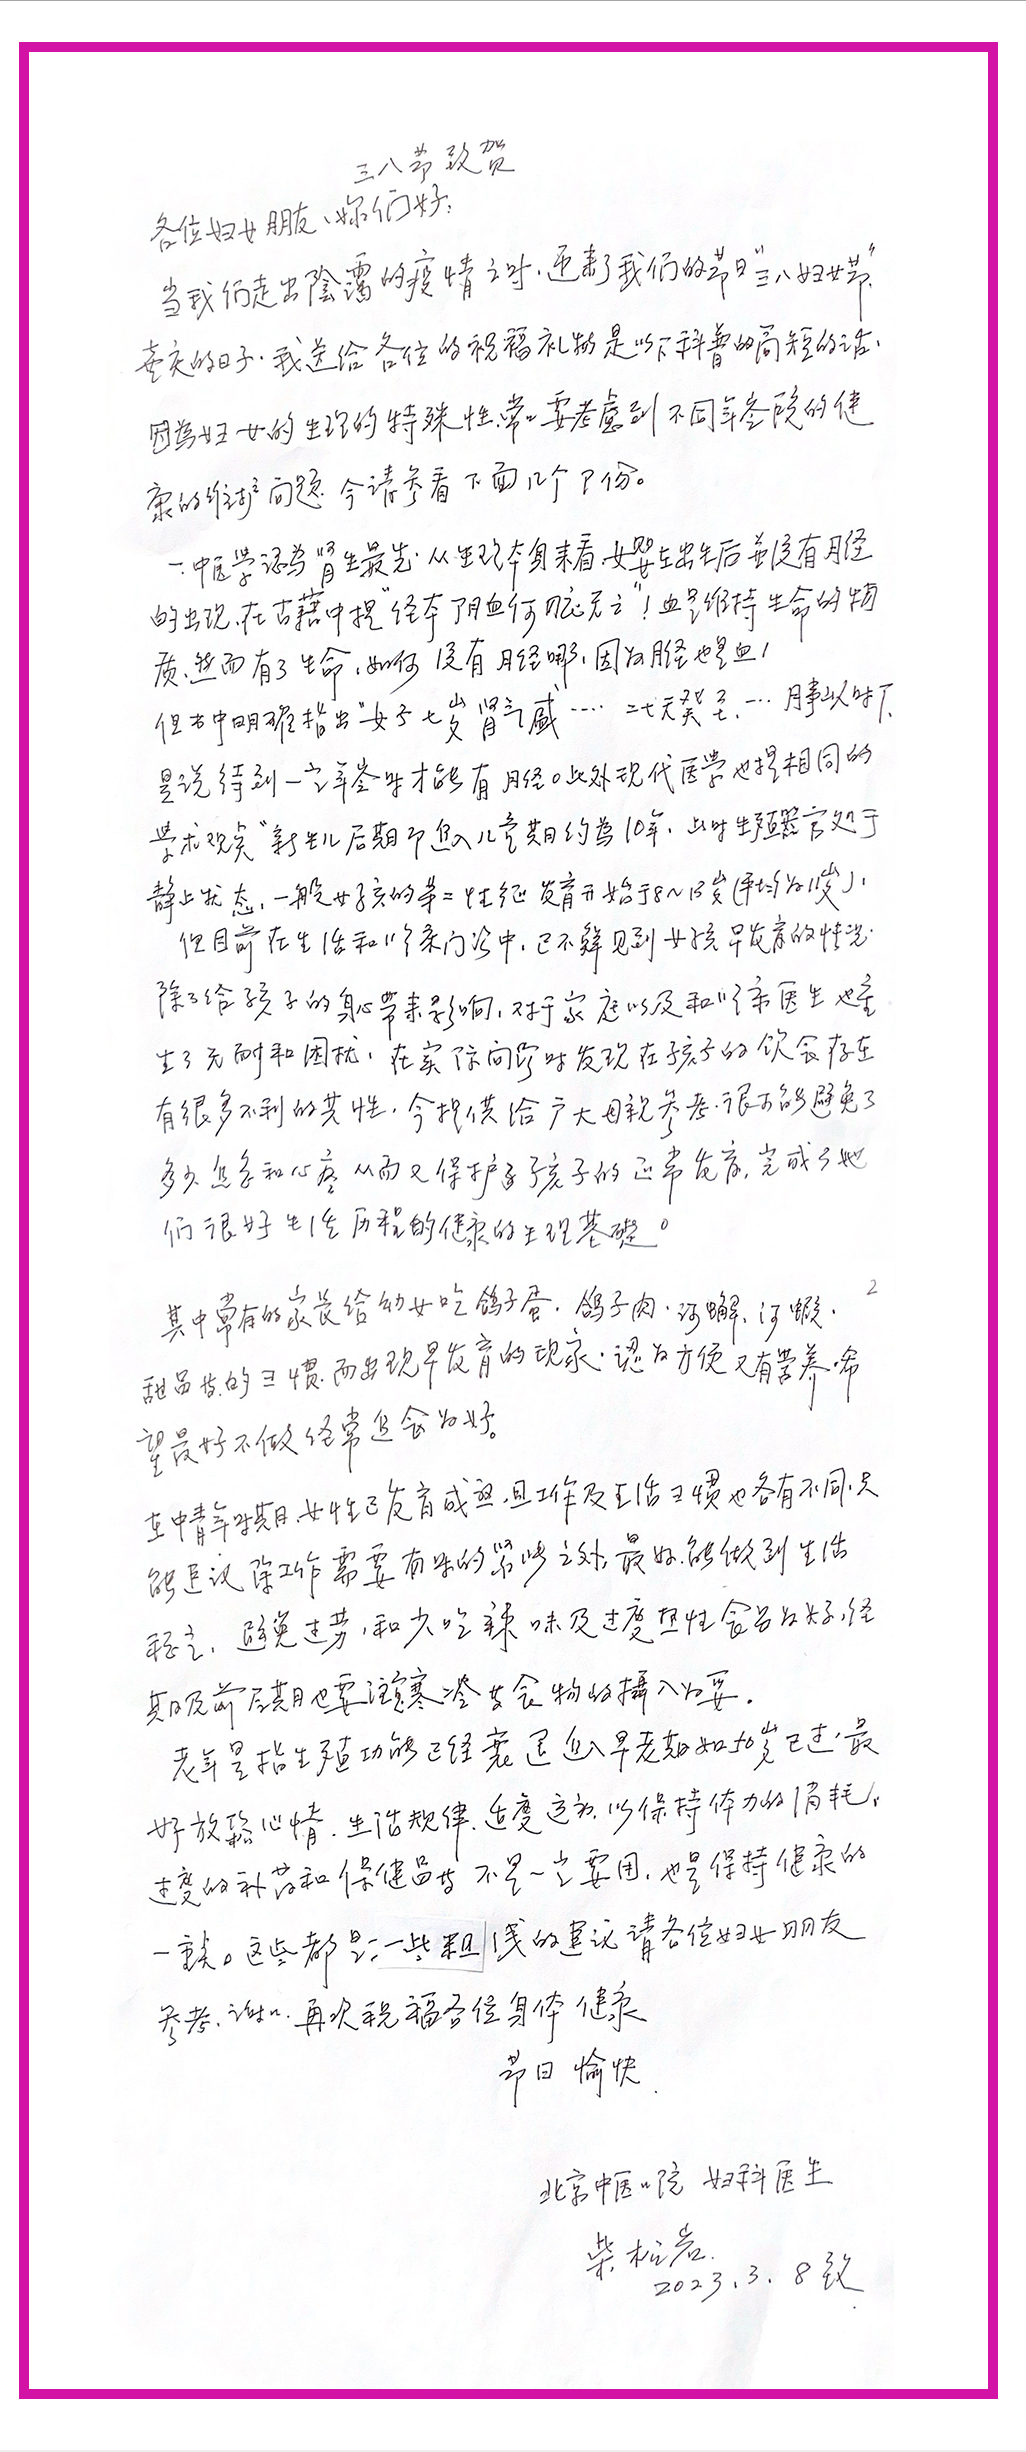 三八节致贺
各位妇女朋友、妳们好：
当我们走出陰霭的疫情之时、迎来了我们的节日"三八妇女节"、
喜庆的日子、我送给各位的祝福礼物是以下科普的简短的话、
因為妇女的生理的特殊性、常々要考慮到不同年令段的健
康的维护问题 今请参看下面几个部份。
一、中医学认為肾生最先、从生理本身来看、女婴在出生后並没有月经
的出现、在古籍中提"经本阴血何脏无之"！血是维持生命的物
质、然而有了生命、如何没有月经哪、因为月经也是血！
但书中明確指出"女子七岁肾气盛…… 二七天癸至、… 月事以时下、
是说待到一定年令时才能有月经。此外现代医学也提相同的
学术观点"新生儿后期即进入儿童期约為10年、此时生殖器官处于
静止状态、一般女孩的第二性征发育开始于8～13岁(平均为11岁)、
但目前在生活和临床门诊中、已不鲜见到女孩早发育的情况、
除了给孩子的身心带来影响、对于家庭以及和临床医生也產
生了无耐和困扰、在实际问诊时发现在孩子的饮食存在
有很多不利的共性、今提供给广大母親参考、很可能避免了
多少焦急和心疼 从而又保护了孩子的正常发育、完成了她
们很好生活历程的健康的生理基礎。
2
其中常有的家長给幼女吃鸽子蛋、鸽子肉、河蟹、河蝦、
甜品等的习惯、而出现早发育的现象、認为方便又有营养、希
望最好不做经常进食为好。
在中青年时期、女性已发育成熟、且工作及生活习惯也各有不同、只
能建议除工作需要有时的紧张之外、最好能做到生活
稳定、避免过劳、和少吃辣味及过度热性食品为好、经
期及前后期也要注意寒冷等食物的攝入为要。
老年是指生殖功能已经衰退进入早老期如50岁已过、最
好放鬆心情、生活规律、适度运动、以保持体力的消耗、
过度的补药和保健品等不是一定要用、也是保持健康的
一素。这些都是：一些粗浅的建议请各位妇女朋友
参考、谢々、再次祝福各位身体健康
节日愉快
北京中医医院 妇科医生
柴松岩
2023.3.8 致